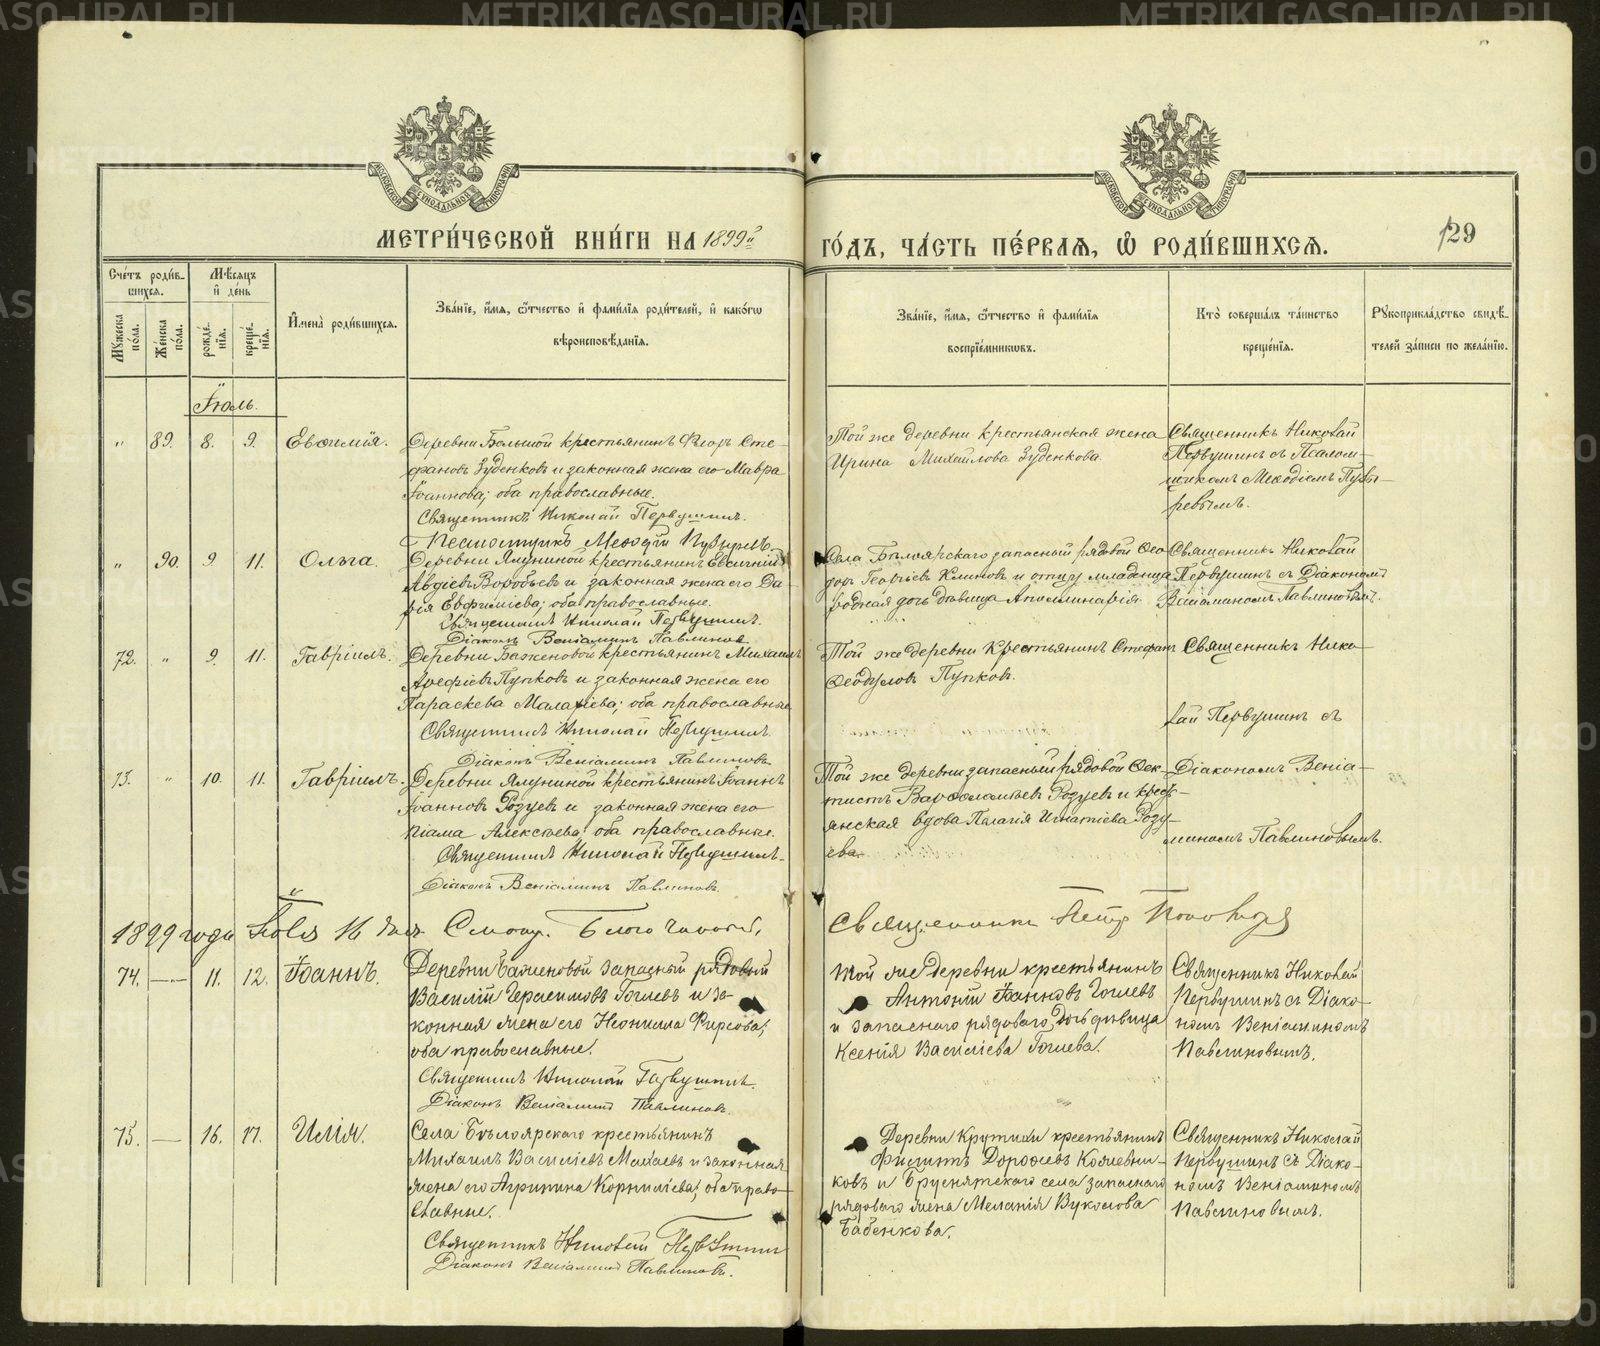 МЕТРИ́ЧЕСКОЙ КНИ́ГИ НА 1899й
ГО́ДЪ, ЧА́СТЬ ПЕ́РВАЯ, Ѡ РОДИ́ВШИХСЯ.
129
Сче́тъ роди́вшихся.
Мѣ́сяцъ и҆ де́нь
Мꙋ́жеска по́ла.
Же́нска по́ла.
рожде́нїя.
креще́нїя.
И҆мена̀ роди́вшихся.
Зва́нїе, и҆́мя, ѻ҆́тчество и҆ фами́лїя роди́телей, и҆ како́гѡ
вѣроисповѣ́данїя.
Зва́нїе, и҆́мя, ѻ҆́тчество и҆ фами́лїя
воспрїе́мникѡвъ.
Кто̀ соверша́лъ та́инство
креще́нїя.
Рꙋкоприкла́дство свидѣ́телей за́писи по жела́нїю.
Іюль.
" 89. 8. 9. Евѳимія.
Деревни Большой крестьянинъ Ѳеоръ Сте-
фановъ Зуденковъ и законная жена его Мавра
Іоаннова; оба православные.
Священникъ Николай Первушинъ.
Псаломщикъ Меѳодій Пузыревъ
Той же деревни крестьянская жена
Ирина Михайлова Зуденкова.
Священникъ Николай
Первушинъ съ Псалом-
щикомъ Меѳодіемъ Пузы-
ревымъ.
" 90. 9 11. Ольга.
Деревни Ялуниной крестьянинъ Евсигній
Авдіевъ Воробьевъ и законная жена его Да-
рія Евфиміева; оба православные.
Священникъ Николай Первушинъ.
Діаконъ Веніаминъ Павлиновъ
Села Бѣлоярскаго запасный рядовой Ѳео-
доръ Георгіевъ Климовъ и отцу младенца
родная дочь дѣвица Аполлинарія.
Священникъ Николай
Первушинъ съ Діакономъ
Веніаминомъ Павлиновымъ.
72. " 9. 11. Гавріилъ.
Деревни Баженовой крестьянинъ Михаилъ
Арефіевъ Пупковъ и законная жена его
Параскева Малахіева; оба православные
Священникъ Николай Первушинъ.
Діаконъ Веніаминъ Павлиновъ
Той же деревни Крестьянинъ Стефанъ
Ѳеодуловъ Пупковъ.
Священникъ Нико-
лай Первушинъ съ
73. " 10. 11. Гавріилъ.
Деревни Ялуниной крестьянинъ Іоаннъ
Іоанновъ Розуевъ и законная жена его
Піама Алексѣева; оба православные.
Священникъ Николай Первушинъ.
Діаконъ Веніаминъ Павлиновъ.
Той же деревни запасный рядовой Ѳек-
тистъ Варѳоломѣевъ Розуевъ и крест-
янская вдова Пелагія Игнатіева Розу-
ева.
Діакономъ Веніа-
миномъ Павлиновымъ.
1899 года Іюля 16 дня Смотр. Благочинный,
Священникъ Петръ
74. — 11. 12. Іоаннъ.
Деревни Баженовой запасный рядовый
Василій Герасимовъ Гоглевъ и за-
конная жена его Неонилла Фирсова;
оба православные.
Священникъ Николай Первушинъ.
Діаконъ Веніаминъ Павлиновъ.
Той же деревни крестьянинъ
Антоній Іоанновъ Гоглевъ
и запаснаго рядоваго дочь дѣвица
Ксенія Василіева Гоглева.
Священникъ Николай
Первушинъ съ Діако-
номъ Веніаминомъ
Павлиновымъ.
75. — 16. 17. Илія.
Села Бѣлоярскаго крестьянинъ
Михаилъ Василіевъ Махаевъ и законная
жена его Агрипина Корниліева; оба право-
славные.
Священникъ Николай Первушинъ
Діаконъ Веніаминъ Павлиновъ.
Деревни Крутихи крестьянинъ
Филиппъ Дороѳеевъ Кожевни-
ковъ и Бруснятскаго села запаснаго
рядоваго жена Меланія Вуколова
Бабенкова.
Священникъ Николай
Первушинъ съ Діако-
номъ Веніаминомъ
Павлиновымъ.